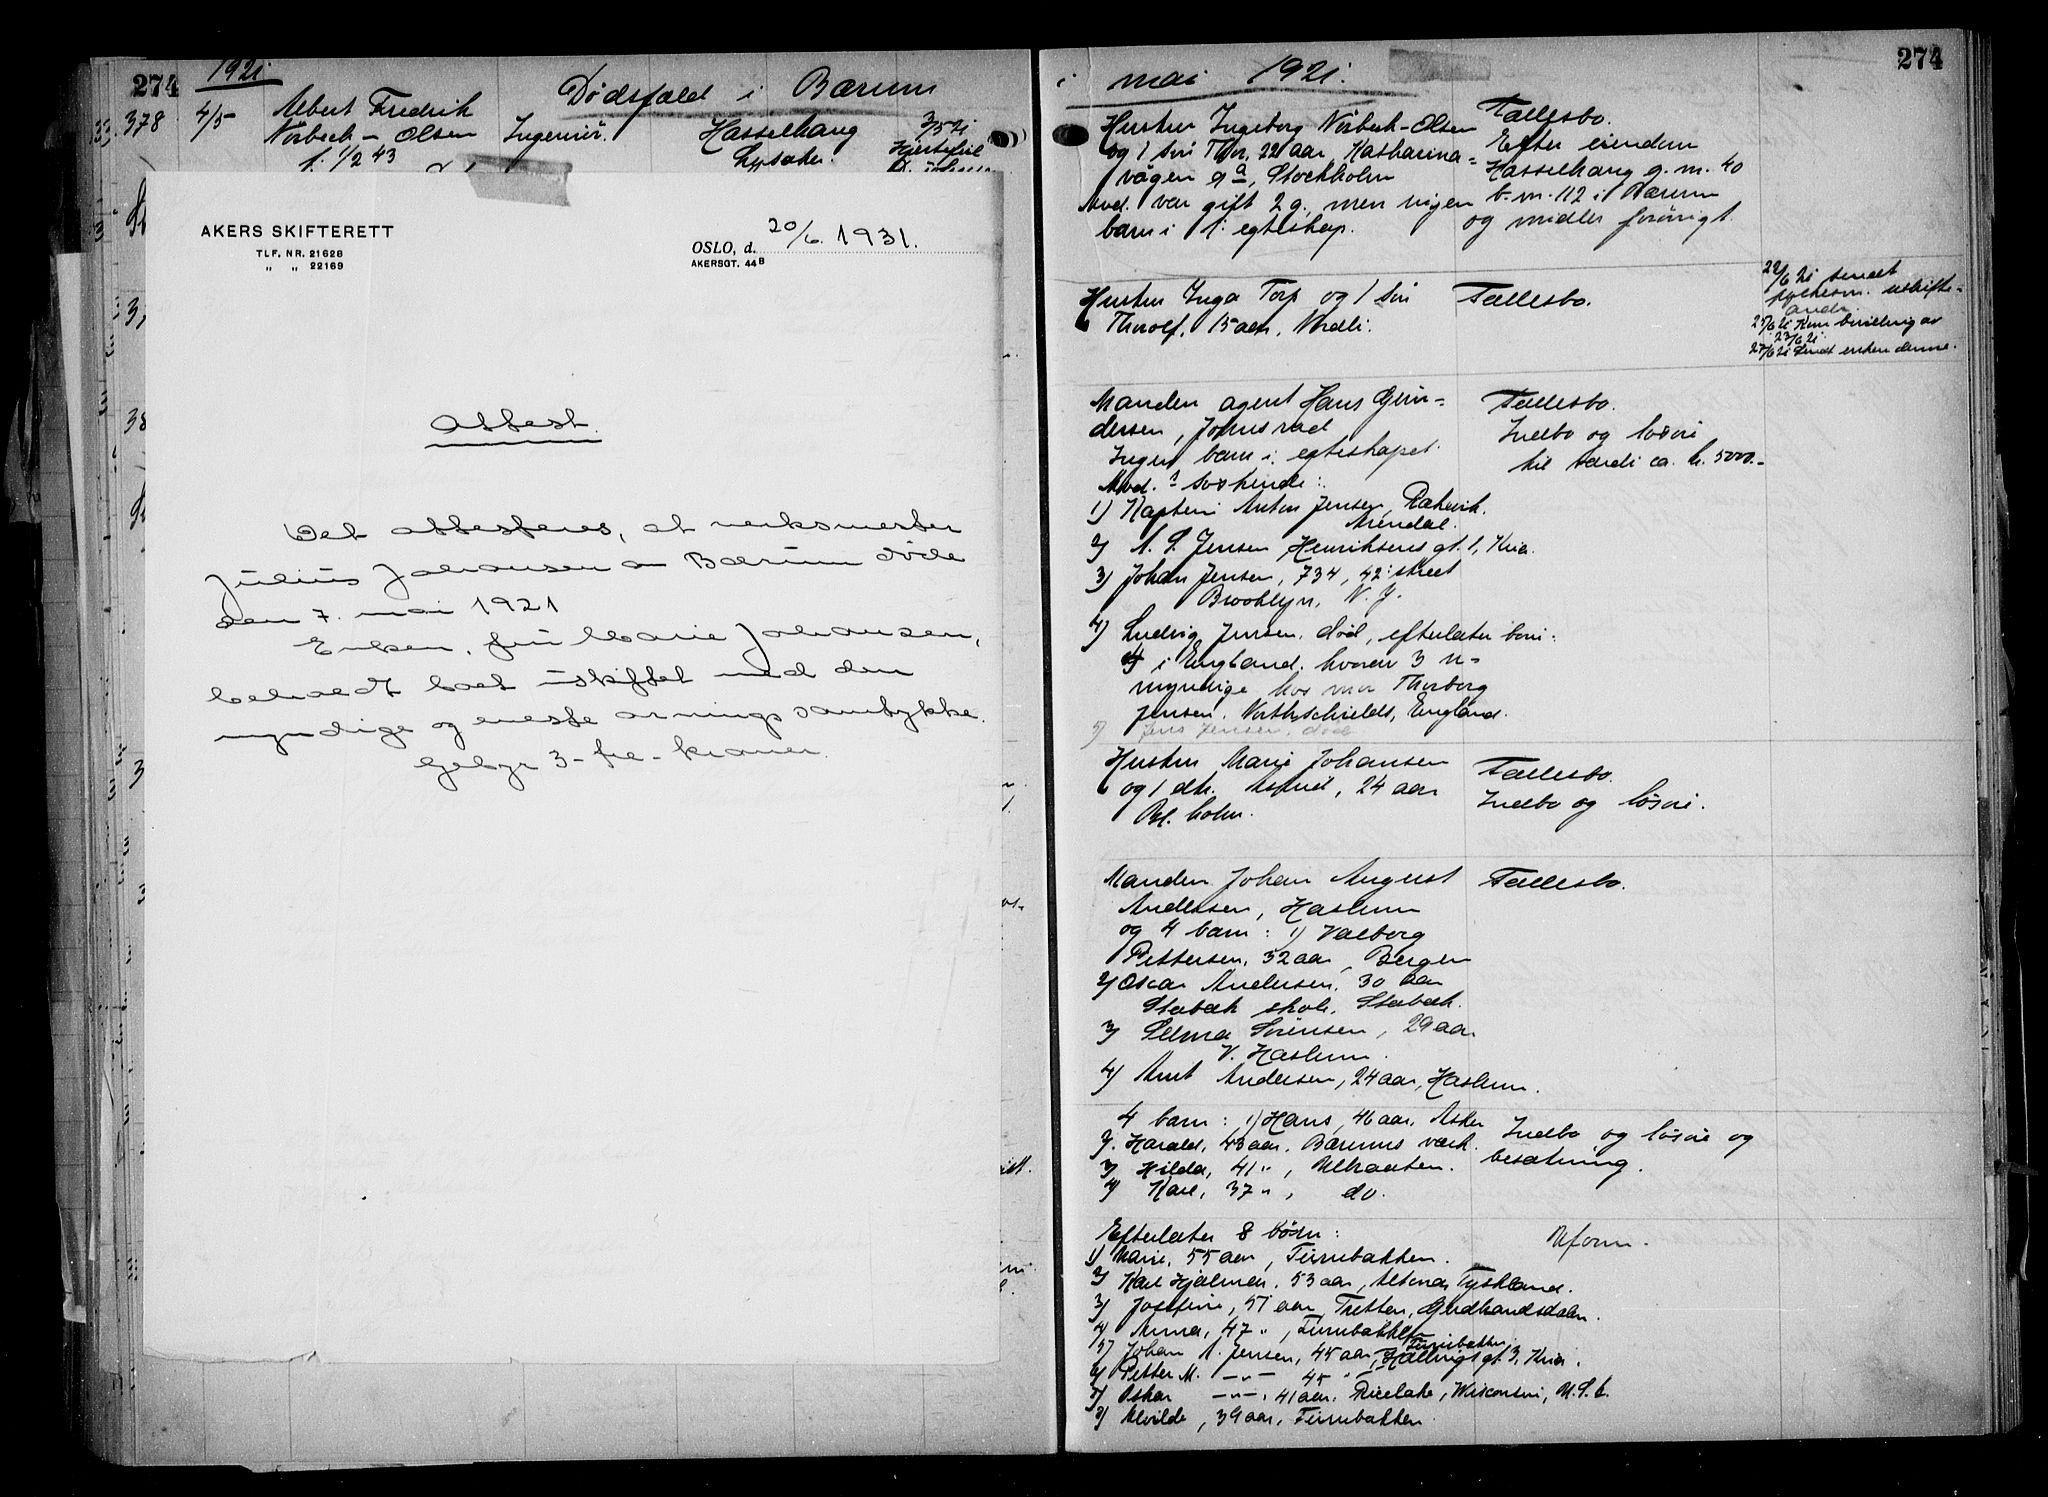 274
1921
Dødsfald i Bærum
378
4/5
Albert Fredrik
Nörbech-Olsen
f. 1/2 43
Ingeniör.
Hasselhaug
Lysaker.
3/5 21
Hjertefeil
AKERS SKIFTERETT
TLF. NR. 21628
" " 22169
OSLO, d. 20/6. 1931.
AKERSGT. 44B
Attest.
Det attesteres, at verksmester
Julius Johansen av Bærum døde
den 7. mai 1921
Enken, fru Marie Johansen,
beholdt boet uskiftet med den
myndige og eneste arvings samtykke.
Gebyr 3 - tre - kroner.
i mai 1921.
274
Hustru Ingeborg Nörbech-Olsen
og 1 sön Thor, 22 aar, Katharina-
vägen 9a, Stockholm
Avd. var gift 2 g., men ingen
barn i 1. egteskap.
Fællesbo.
Efter eiendom
Hasselhaug g. nr. 40
b. nr. 112 i Bærum
og midler forövrigt.
Hustru Inga Torp og 1 sön
Thorolf, 15 aar, Nordli.
Fællesbo.
22/6 21 sendt
fylkesm. uskifte-
andr.
25/6 21 Kom bevilling av
23/6 21.
27/6 21 Sendt enken denne.
Manden agent Hans Gun-
dersen, Johnsrud
Ingen barn i egteskapet.
Avd.s søskende:
1) Kaptein Anton Jensen, Rækevik.
Arendal.
2) A. S. Jensen, Henriksens gt. 1, Kria.
3) Johan Jensen, 734, 42: street
Brooklyn, N. Y.
4) Ludvig Jensen, död, efterlater barn:
4 i England, hvorav 3 u-
myndige hos mor Thorborg
Jensen, North Schields, England.
5) Jens Jensen, död
Fællesbo.
Indbo og løsøre
til værdi ca. kr. 5000.-
Hustru Marie Johansen
og 1 dtr. Astrid, 24 aar
Bl. holm.
Fællesbo.
Indbo og løsøre.
Manden Johan August
Andersen, Haslum
og 4 barn: 1) Valborg
Pettersen, 32 aar, Bergen
2) Oscar Andersen, 30 aar
Stabæk skole, Stabæk.
3) Selma Sörensen, 29 aar
V. Haslum.
4) Arnt Andersen, 24 aar, Haslum.
Fællesbo.
4 barn: 1) Hans, 46 aar, Asker
2. Harald, 43 aar, Bærums værk.
3) Hilda, 41 ", Ulhaaten.
4) Karl, 37 ", do.
Indbo og løsøre og
besætning.
Efterlater 8 børn:
1) Marie, 55 aar, Furubakken.
2) Karl Hjalmar, 53 aar, Altona, Tyskland.
3) Josefine, 51 aar, Tretten, Gudbrandsdalen.
4) Anna, 47 ", Furubakken
5) Johan A. Jensen, 45 aar, Furubakken
6) Petter M. -"- 45 " Hallings gt. 3, Kria.
7) Oskar -"-, 41 aar, Ricelake, Wisconsin, U.S.A.
8) Alvilde, 39 aar, Furubakken.
Uform.